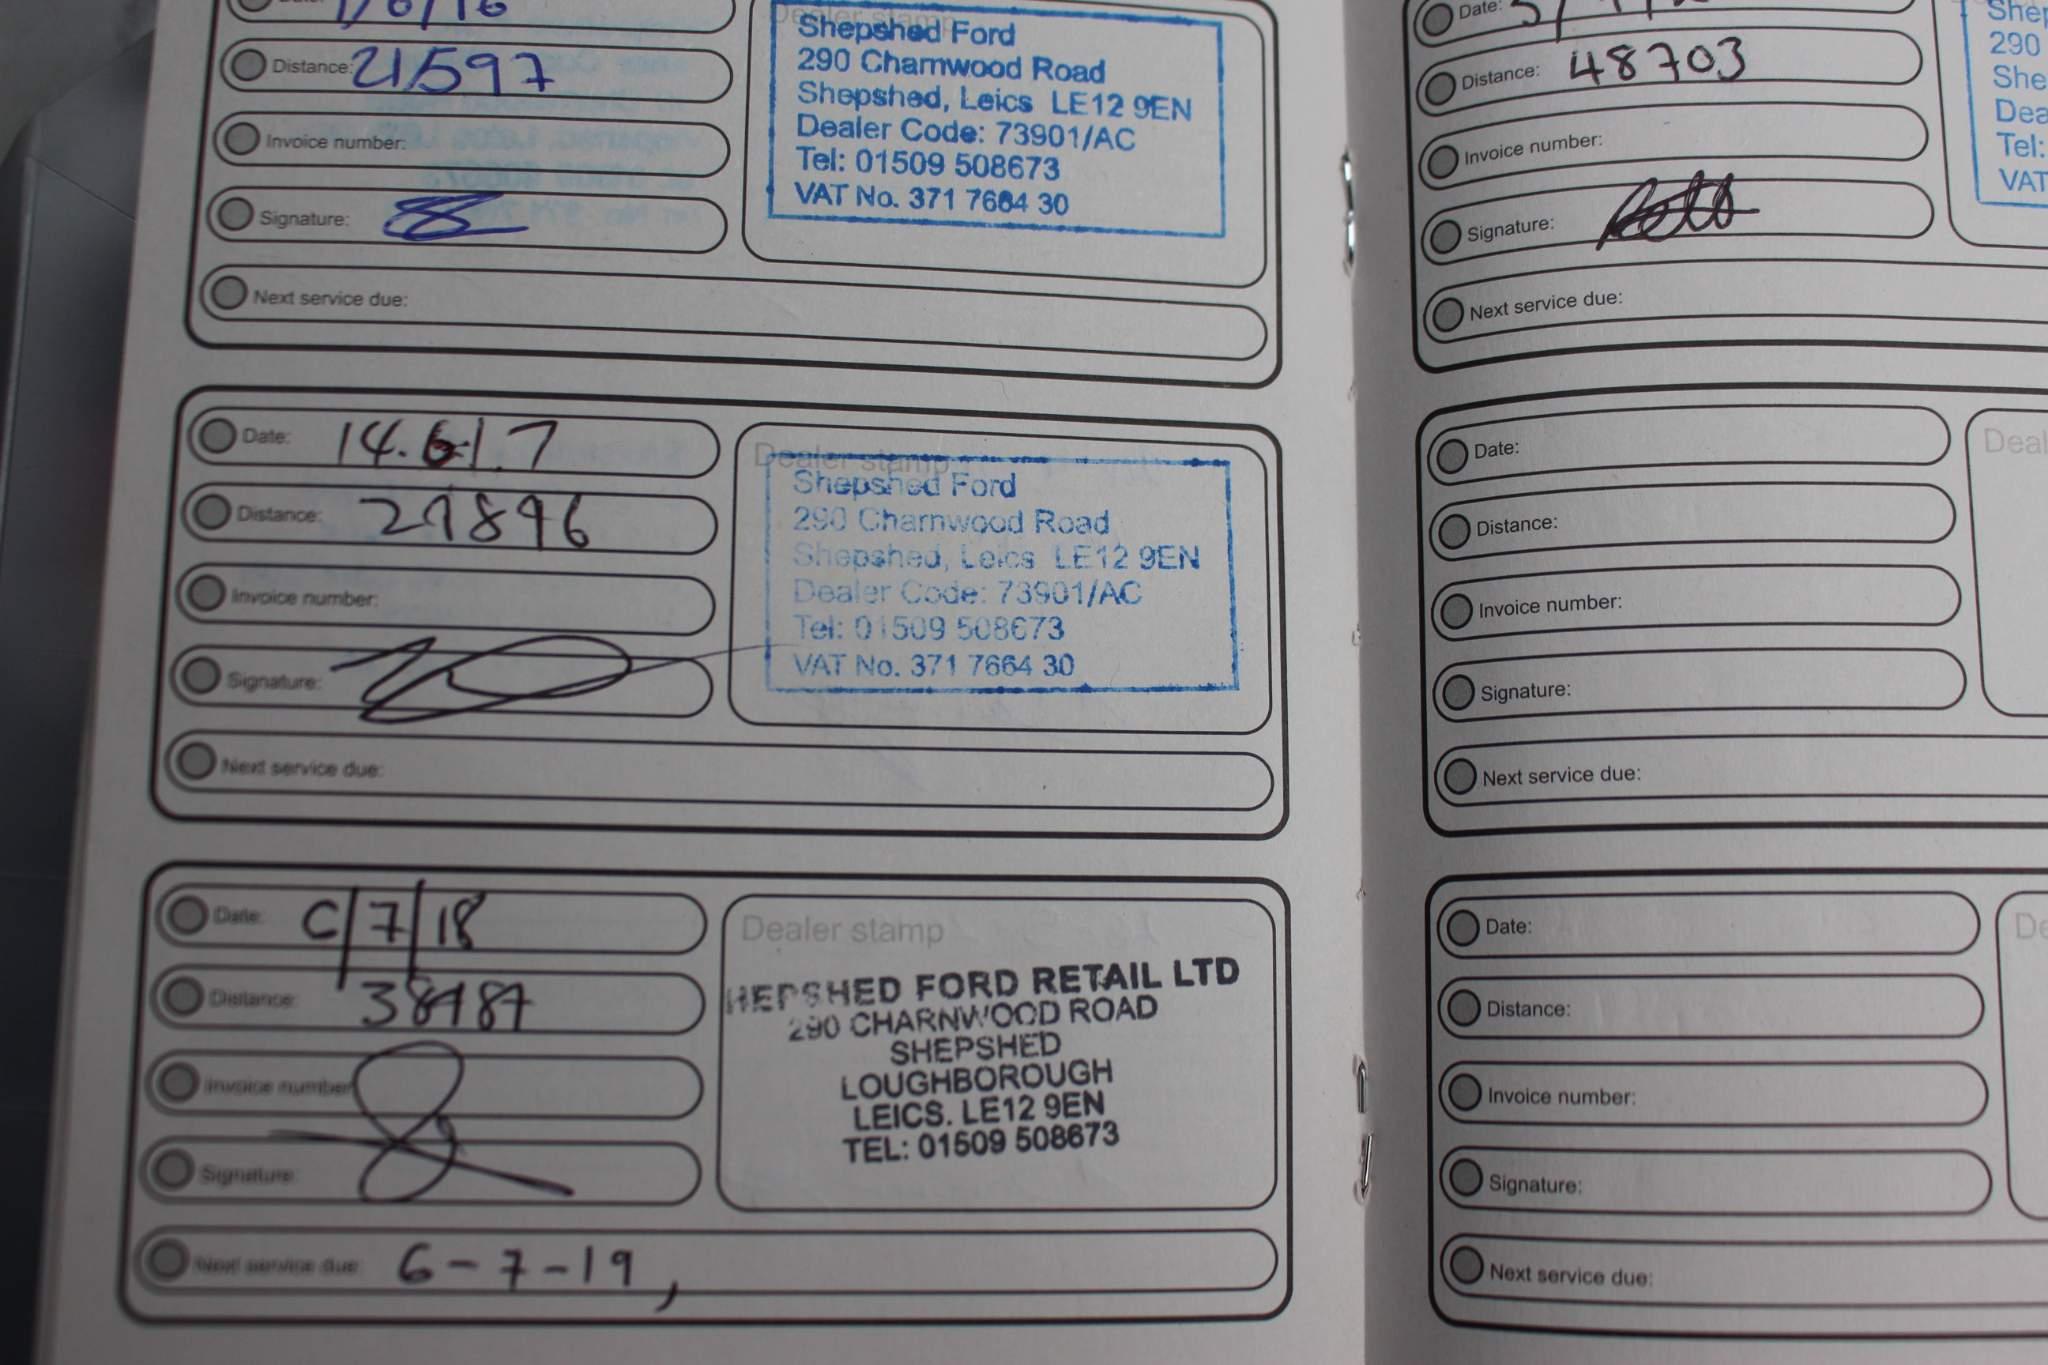 Distance: 21,597
Invoice number:
Signature:
Next service due:
Dealer stamp
Shepshed Ford
290 Charnwood Road
Shepshed, Leics LE12 9EN
Dealer Code: 73901/AC
Tel: 01509 508673
VAT No. 371 7664 30
Date: 14.6.17
Distance: 27896
Invoice number:
Signature:
Next service due:
Dealer stamp
Shepshed Ford
290 Charnwood Road
Shepshed, Leics LE12 9EN
Dealer Code: 73901/AC
Tel: 01509 508673
VAT No. 371 7664 30
Date: 6/7/18
Distance: 38787
Invoice number
Signature:
Next service due: 6-7-19,
Dealer stamp
HEPSHED FORD RETAIL LTD
290 CHARNWOOD ROAD
SHEPSHED
LOUGHBOROUGH
LEICS. LE12 9EN
TEL: 01509 508673
Date:
Distance: 48703
Invoice number:
Signature:
Next service due:
290
Tel:
VAT
Date:
Distance:
Invoice number:
Signature:
Next service due:
Date:
Distance:
Invoice number:
Signature:
Next service due: